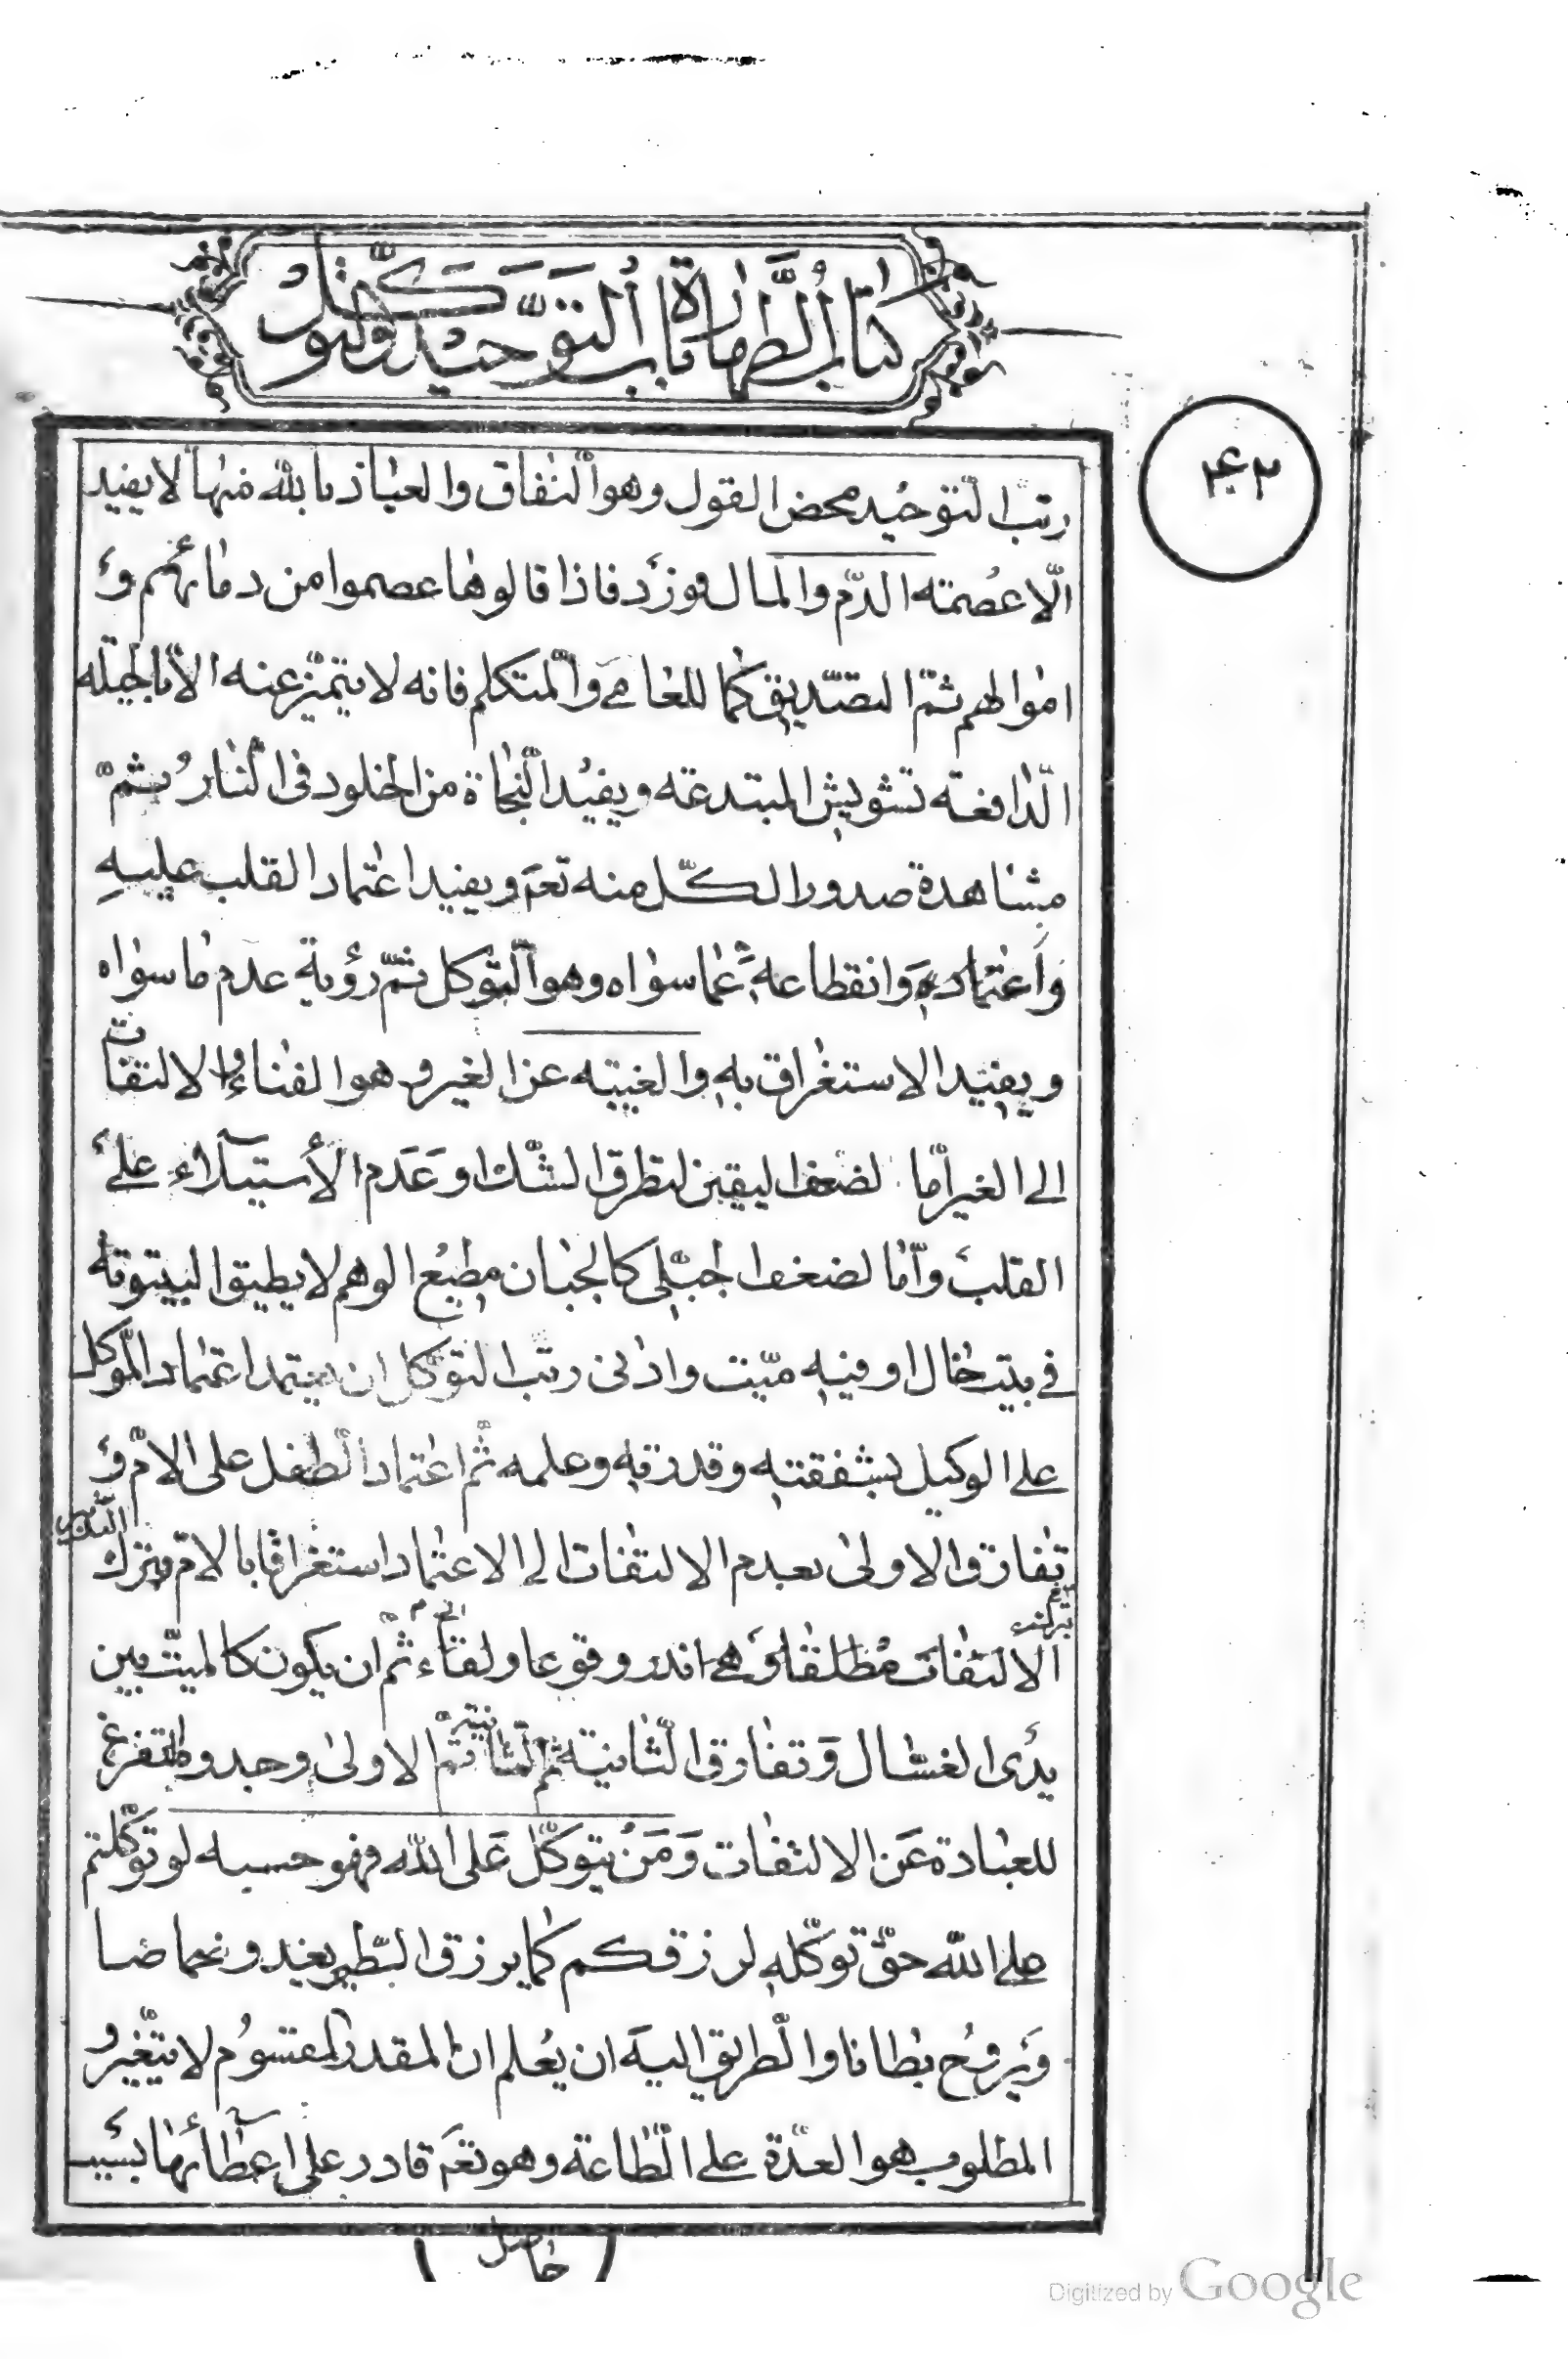 كتاب الطهارة باب التوحيد والتوكل
رتب التوحيد محض القول وهو النفاق والعياذ بالله منها لا يفيد
الّا عصمته الدّم والمال وورد فاذا قالوها عصموا من دمائهم و
اموالهم ثمّ التصديق كما للعامي والمتكلم فانه لا يتميّز عنه الّا بالحيله
الدّافعة تشويش المبتدعة ويفيد النّجاة من الخلود في النّار ثمّ
مشاهدة صدور الكلّ منه تعم ويفيد اعتماد القلب عليه
واعتماده وانقطاعه عمّا سواه وهو التّوكل ثمّ رؤية عدم ما سواه
ويفيد الاستغراق به والغيبته عن الغير وهو الفناء والالتفات
الى الغير امّا لضعف اليقين لتطرق الشّك او عدم الأستيلاء على
القلب وامّا لضعف جبلّي كالجبان مطيع الوهم لا يطيق البيتوتة
في بيت خال او فيه ميّت وادنى رتب التوكل ان يعتمد اعتماد الموكل
على الوكيل بشفقته وقدرته وعلمه ثم اعتماد الطفل على الامّ و
تفارق الاولى بعدم الالتفات الى الاعتماد استغراقا بالامّ وبترك التدبير
الالتفات مطلقا وهي اندر وقوعا ولقاء ثم ان يكون كالميّت بين
يدى الغسّال وتفارق الثّانية ثم الثانية ثم الاولى وحد وطا تفرغ
للعبادة عن الالتفات وَمَنْ يتوكّل عَلى الله فهو حسبه لو توكّلتم
على الله حقّ توكّله لرزقكم كما يرزق الطير يغدو خماصا
ويروح بطانا والطريق اليه ان يعلم انّ المقدر المقسوم لا يتغير و
المطلوب هو العدّة على الطّاعة وهو تعم قادر على اعطائها بسبب
(حاصل)
۴۲
Digitized by Google